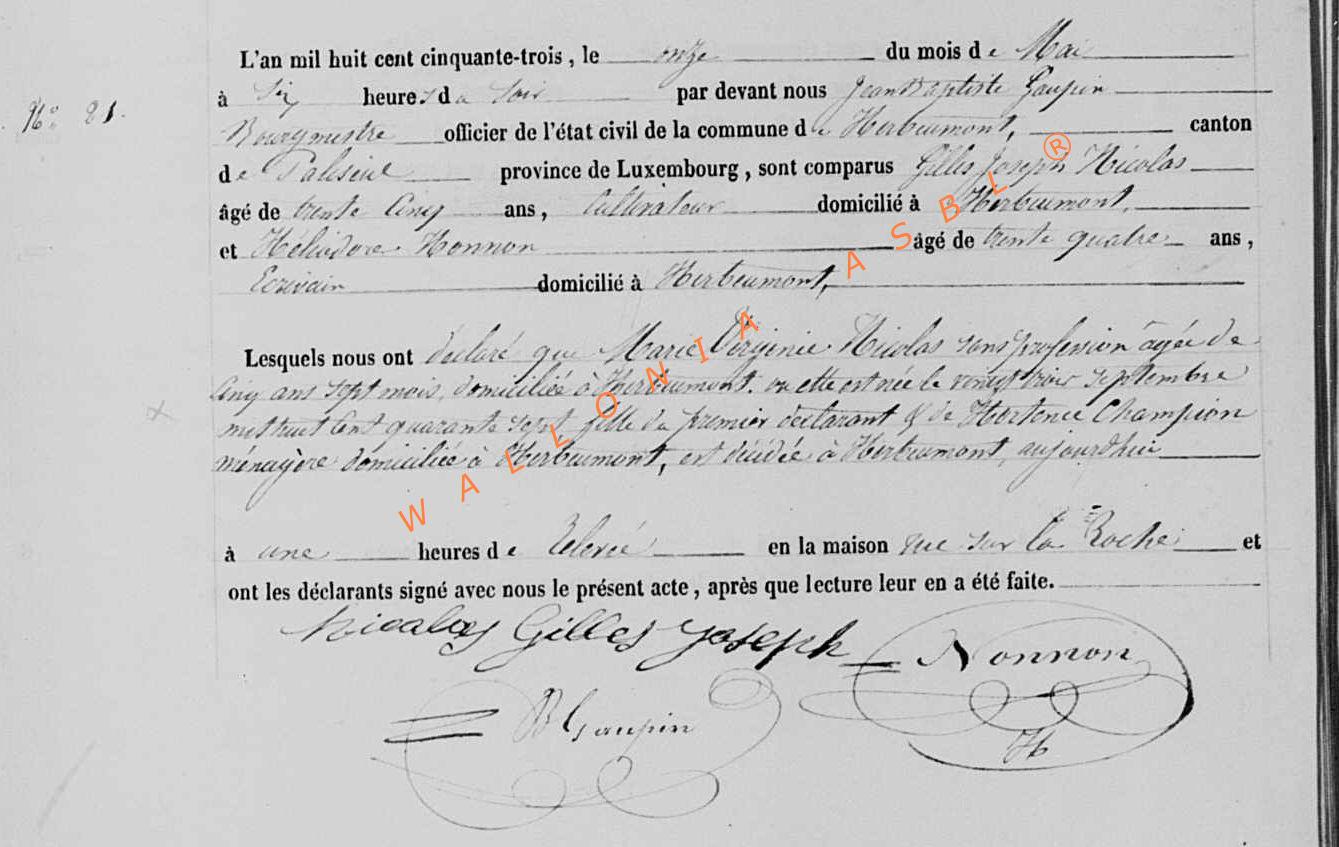 L'an mil huit cent cinquante-trois, le onze du mois de Mai
à Six heures du Soir par devant nous Jean Baptiste Gaupin
N° 21.
Bourgmestre officier de l'état civil de la commune de Herbeumont, canton
de Paliseul province de Luxembourg, sont comparus Gilles Joseph Nicolas
âgé de trente Cinq ans, Cultivateur domicilié à Herbeumont,
et Héliodore Nonnon âgé de trente quatre ans,
Ecrivain domicilié à Herbeumont,
Lesquels nous ont déclaré que Marie Virginie Nicolas sans profession âgée de
Cinq ans sept mois, domiciliée à Herbeumont. où elle est née le vingt trois septembre
mil huit Cent quarante sept, fille du premier déclarant & de Hortence Champion
ménagère domiciliée à Herbeumont, est décédée à Herbeumont, aujourd'hui
à une heures de Relevée en la maison rue sur la Roche et
ont les déclarants signé avec nous le présent acte, après que lecture leur en a été faite.
Nicolas Gilles Joseph Nonnon
H
JB Gaupin
WALLONIA ASBL ®